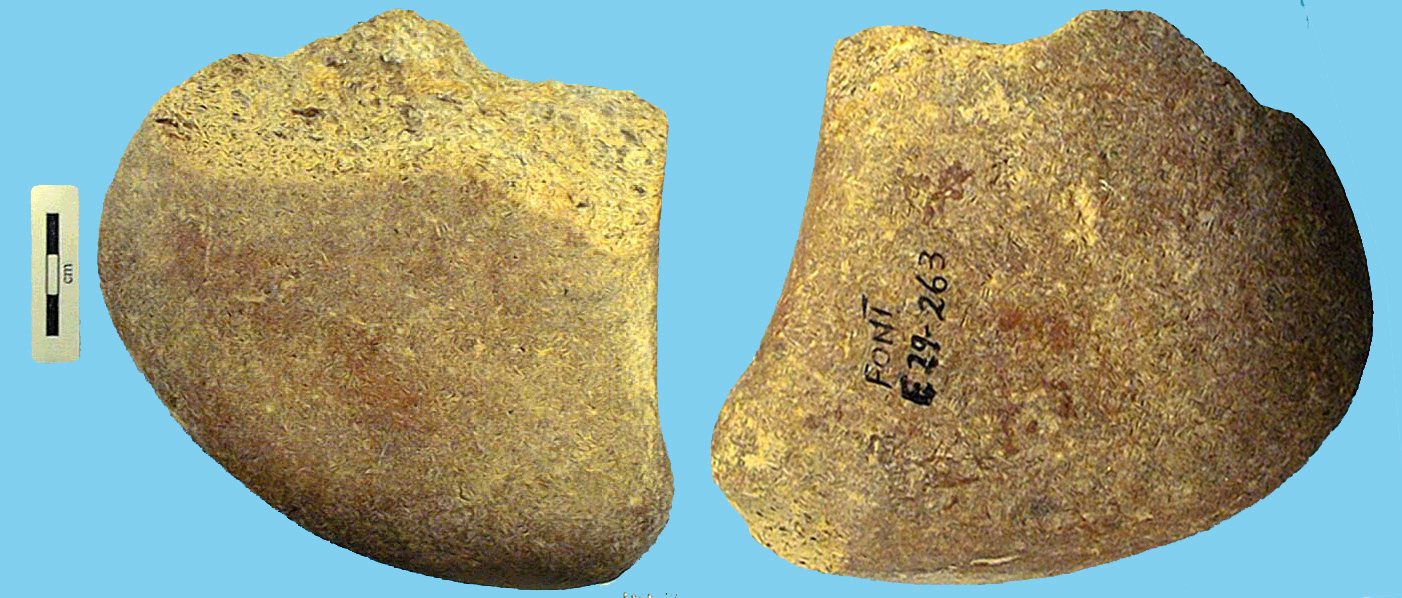 cm
FONT
E 29-263